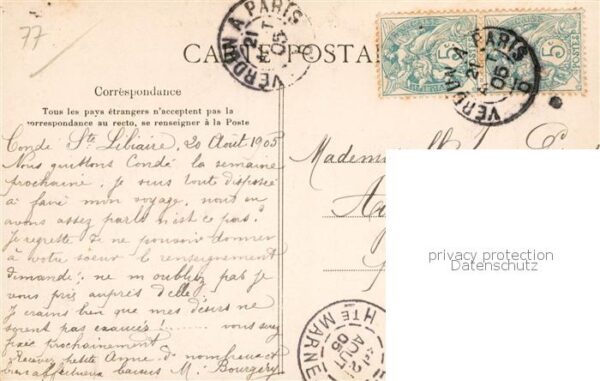 77
VERDUN A PARIS
21
05
CARTE POSTA
5
5
POSTES
VERDUN A PARIS
21
05
Correspondance
Tous les pays étrangers n'acceptent pas la
correspondance au recto, se renseigner à la Poste
Condé Ste Libiaire, 20 Août 1905
Nous quittons Condé la semaine
prochaine, je suis toute disposée
à faire mon voyage, nous en
avons assez parlé n'est ce pas?
Je regrette de ne pouvoir donner
à votre soeur le renseignement
demandé; ne m'oubliez pas je
vous prie auprès d'elle.
Je crains bien que mes désirs ne
soient pas exaucés! vous
fixée prochainement
Recevez petite Anna d' nombreux et
affectueux baisers M. Bourgery
Mademoiselle
privacy protection
Datenschutz
HTE MARNE
AOUT
05